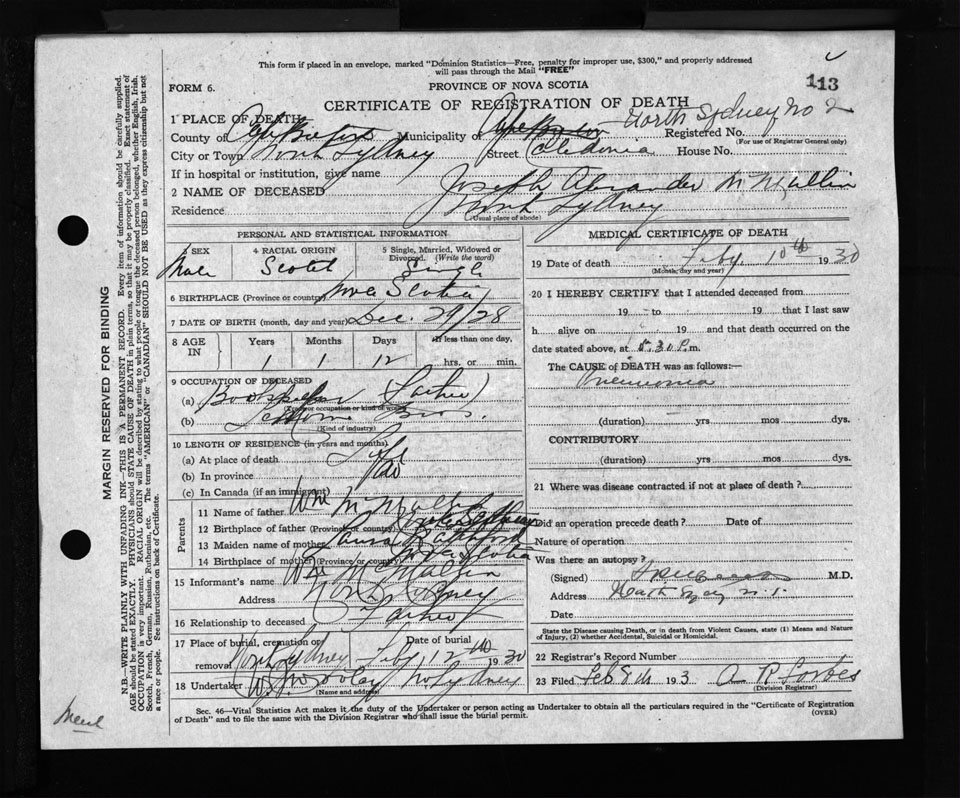 This form if placed in an envelope, marked "Dominion Statistics—Free, penalty for improper use, $300," and properly addressed
will pass through the Mail "FREE"
113
FORM 6.
PROVINCE OF NOVA SCOTIA
CERTIFICATE OF REGISTRATION OF DEATH
North Sydney No 2
1 PLACE OF DEATH
County of Cape Breton Municipality of Cape Breton Registered No.
(For use of Registrar General only)
City or Town North Sydney Street Caledonia House No.
If in hospital or institution, give name
2 NAME OF DECEASED Joseph Alexander
Residence North Sydney
(Usual place of abode)
PERSONAL AND STATISTICAL INFORMATION
3 SEX 4 RACIAL ORIGIN 5 Single, Married, Widowed or Divorced. (Write the word)
Male Scotch Single
6 BIRTHPLACE (Province or country) Nova Scotia
7 DATE OF BIRTH (month, day and year) Dec. 29/28
8 AGE IN Years Months Days If less than one day,
1 1 12 hrs. or min.
9 OCCUPATION OF DECEASED
(a) Bookkeeper (Father)
(Type or occupation or kind of work)
(b) Bros.
(Kind of industry)
10 LENGTH OF RESIDENCE (in years and months)
(a) At place of death Life
(b) In province do
(c) In Canada (if an immigrant)
Parents
11 Name of father Wm
12 Birthplace of father (Province or country)
13 Maiden name of mother Laura
14 Birthplace of mother (Province or country) Nova Scotia
15 Informant's name Wm
Address North Sydney
16 Relationship to deceased Father
17 Place of burial, cremation or removal North Sydney Date of burial Feby 12th 1930
18 Undertaker No Sydney
(Name and address)
MEDICAL CERTIFICATE OF DEATH
19 Date of death Feby. 10th 1930
(Month, day and year)
20 I HEREBY CERTIFY that I attended deceased from
19 to 19 that I last saw
h alive on 19 and that death occurred on
date stated above, at 8.30 P.m.
The CAUSE of DEATH was as follows:—
Pneumonia
(duration) yrs mos dys.
CONTRIBUTORY
(duration) yrs mos dys.
21 Where was disease contracted if not at place of death?
Did an operation precede death? Date of
Nature of operation
Was there an autopsy?
(Signed) M.D.
Address North Sydney N.S.
Date
State the Disease causing Death, or in death from Violent Causes, state (1) Means and Nature
of Injury, (2) whether Accidental, Suicidal or Homicidal.
22 Registrar's Record Number
23 Filed Feb 193 A R Forbes
(Division Registrar)
Sec. 46—Vital Statistics Act makes it the duty of the Undertaker or person acting as Undertaker to obtain all the particulars required in the "Certificate of Registration
of Death" and to file the same with the Division Registrar who shall issue the burial permit.
(OVER)
MARGIN RESERVED FOR BINDING
N.B—WRITE PLAINLY WITH UNFADING INK—THIS IS A PERMANENT RECORD. Every item of information should be carefully supplied.
AGE should be stated EXACTLY. PHYSICIANS should STATE CAUSE OF DEATH in plain terms, so that it may be properly classified. Exact statement of
OCCUPATION is very important. RACIAL ORIGIN will be described by stating to what people or tongue the deceased person belonged, whether English, Irish,
Scotch, French, German, Russian, Ruthenian, etc. The terms "AMERICAN" or "CANADIAN" SHOULD NOT BE USED as they express citizenship but not
a race or people. See instructions on back of Certificate.